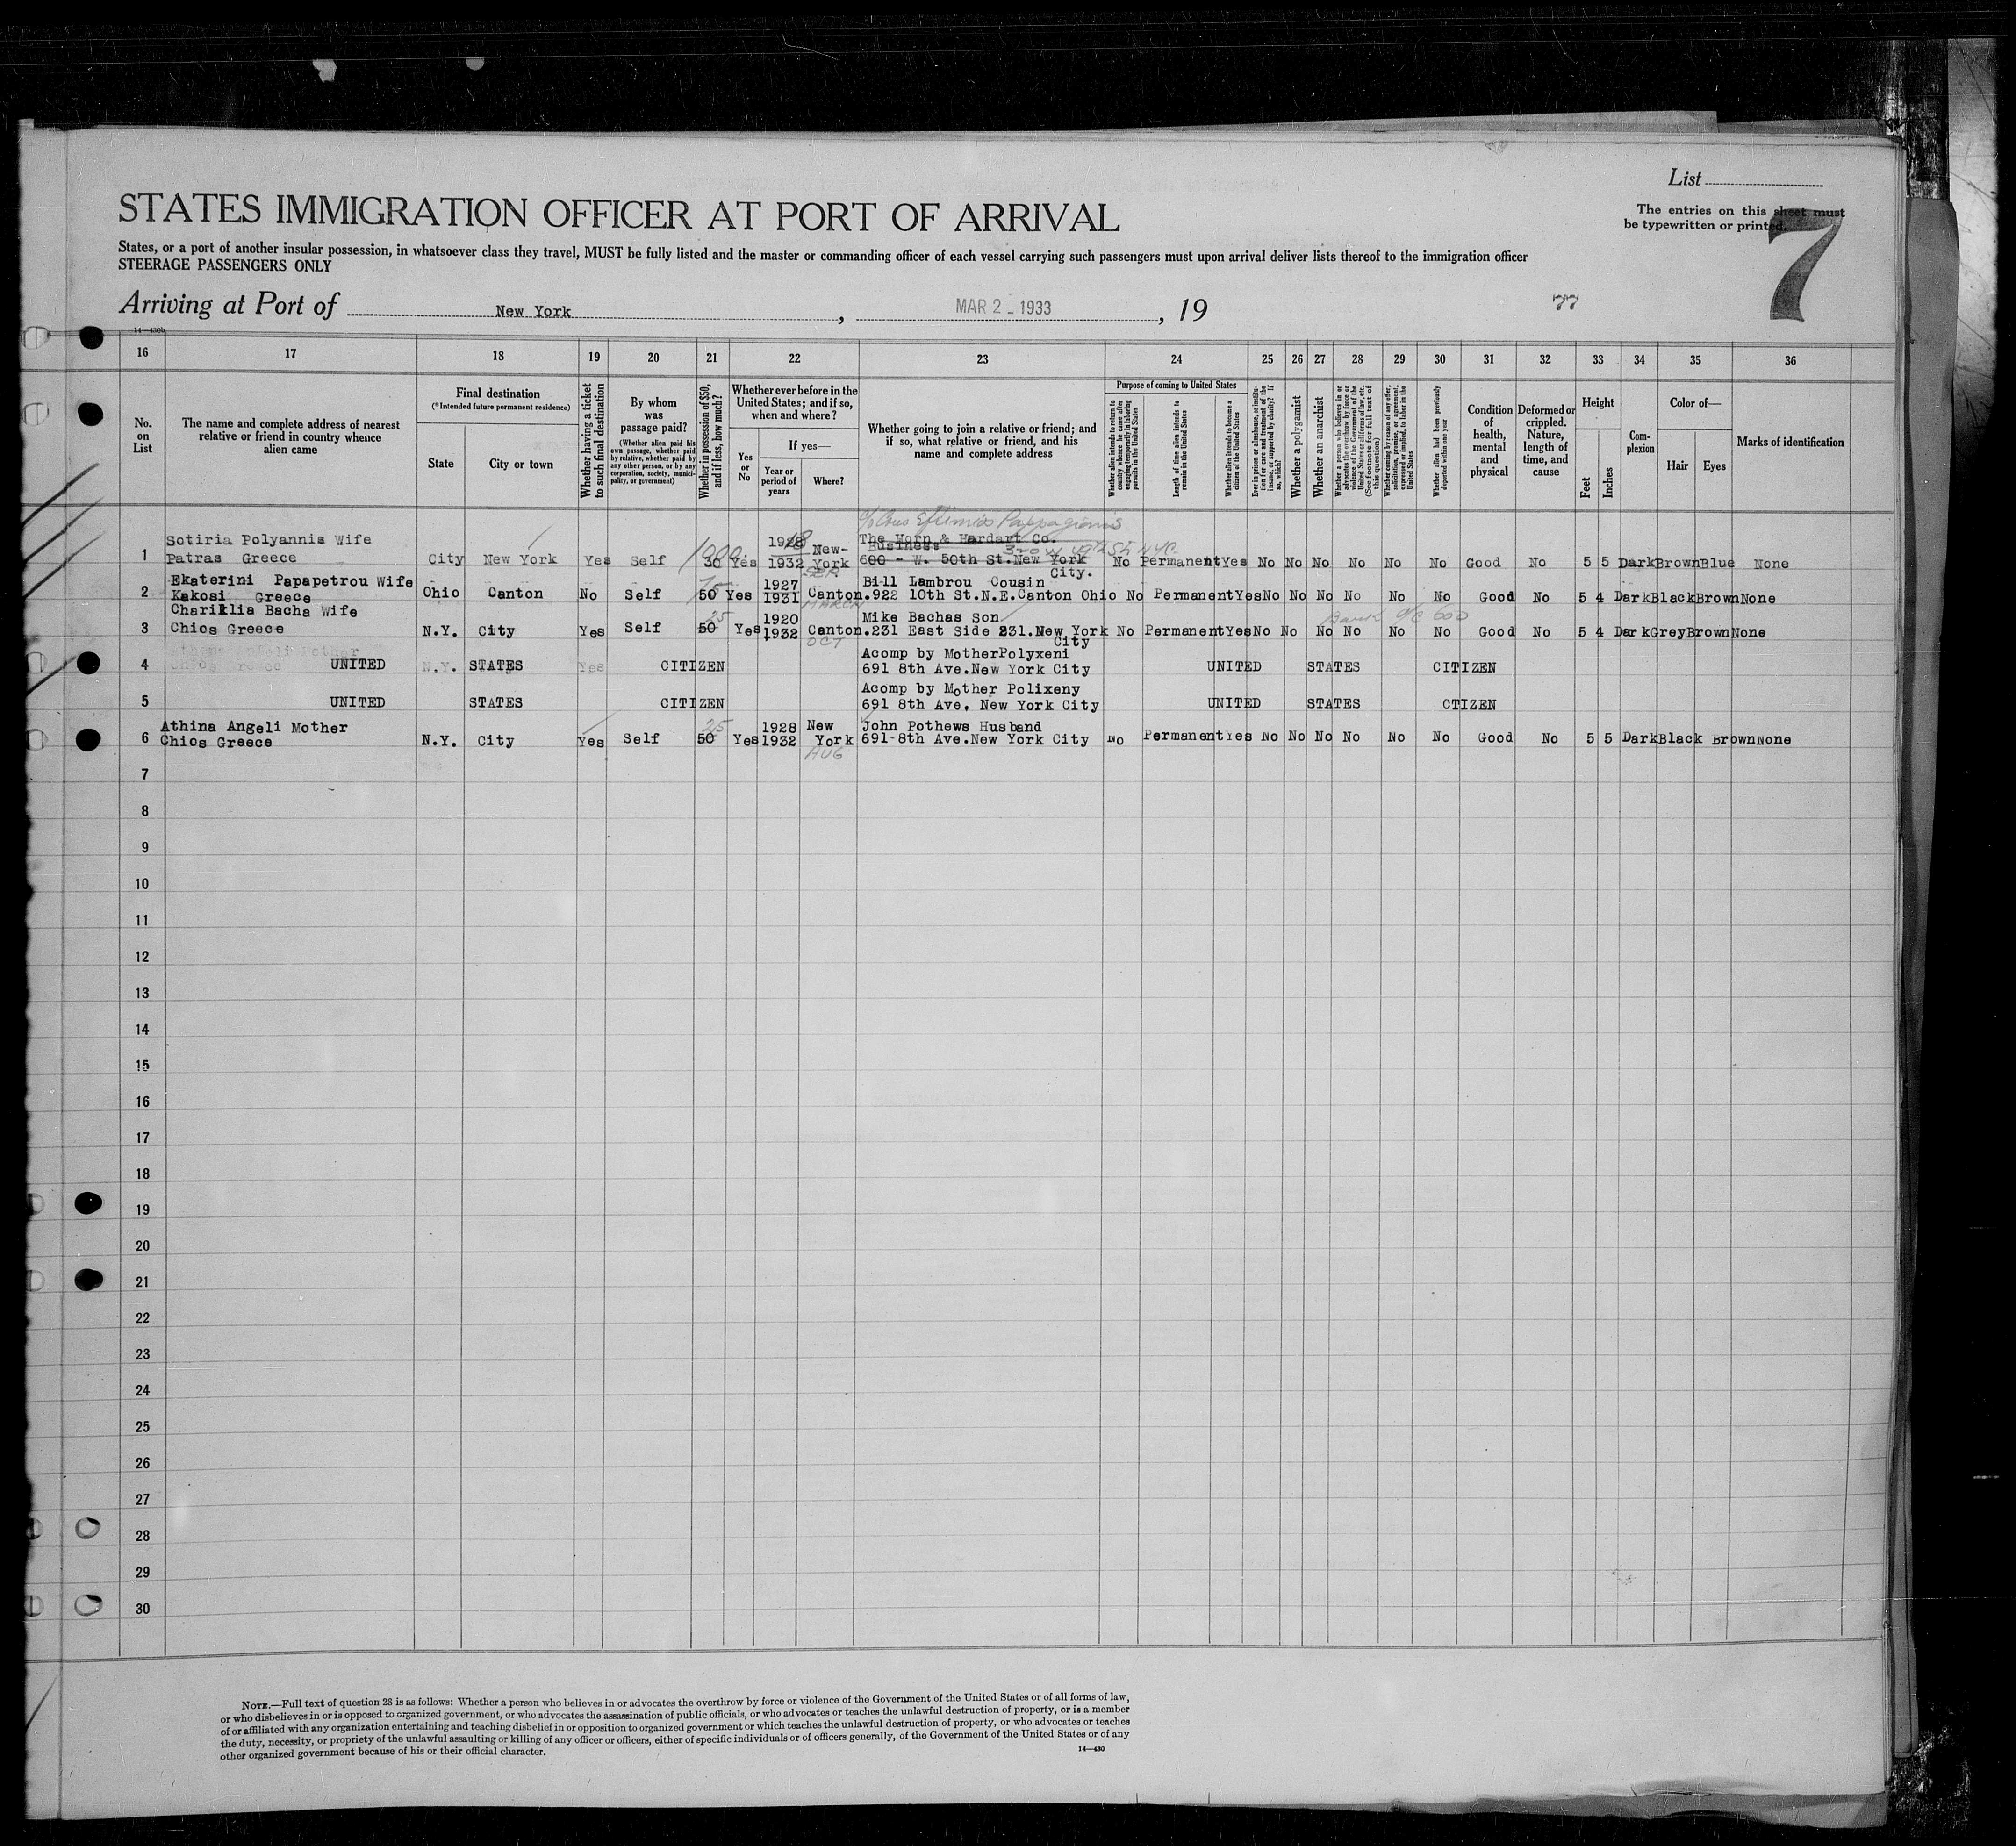 List
The entries on this sheet must
be typewritten or printed.
7
STATES IMMIGRATION OFFICER AT PORT OF ARRIVAL
States, or a port of another insular possession, in whatsoever class they travel, MUST be fully listed and the master or commanding officer of each vessel carrying such passengers must upon arrival deliver lists thereof to the immigration officer
STEERAGE PASSENGERS ONLY
Arriving at Port of New York, MAR 2 - 1933, 19
77
14—430b
16 17 18 19 20 21 22 23 24 25 26 27 28 29 30 31 32 33 34 35 36
No. on List
The name and complete address of nearest relative or friend in country whence alien came
Final destination
(*Intended future permanent residence)
State
City or town
Whether having a ticket to such final destination
By whom was passage paid?
(Whether alien paid his own passage, whether paid by relative, whether paid by any other person, or by any corporation, society, municipality, or government)
Whether in possession of $50, and if less, how much?
Whether ever before in the United States; and if so, when and where?
Yes or No
If yes—
Year or period of years
Where?
Whether going to join a relative or friend; and if so, what relative or friend, and his name and complete address
Purpose of coming to United States
Whether alien intends to return to country whence he came after engaging temporarily in laboring pursuits in the United States
Length of time alien intends to remain in the United States
Whether alien intends to become a citizen of the United States
Ever in prison or almshouse, or institution for care and treatment of the insane, or supported by charity? If so, which?
Whether a polygamist
Whether an anarchist
Whether a person who believes in or advocates the overthrow by force or violence of the Government of the United States or all forms of law, etc. (See footnote for full text of this question)
Whether coming by reason of any offer, solicitation, promise, or agreement, expressed or implied, to labor in the United States
Whether alien had been previously deported within one year
Condition of health, mental and physical
Deformed or crippled. Nature, length of time, and cause
Height
Feet
Inches
Complexion
Color of—
Hair
Eyes
Marks of identification
c/o Cous Eftimios Pappagionis
1 Sotiria Polyannis Wife 1918 New- The Horn & Hardart Co.
Business
Patras Greece City New York Yes Self 1000. 30 Yes 1932 York 600 - W. 50th St.New York No Permanent Yes No No No No No No Good No 5 5 Dark Brown Blue None
SEP. City.
2 Ekaterini Papapetrou Wife 1927 Bill Lambrou Cousin
Kakosi Greece Ohio Canton No Self 50 Yes 1931 Canton.922 10th St.N.E.Canton Ohio No Permanent Yes No No No No No No Good No 5 4 Dark Black Brown None
MARCH
3 Chariklia Bacha Wife 25 1920 Mike Bachas Son Bank a/c 600
Chios Greece N.Y. City Yes Self 50 Yes 1932 Canton.231 East Side 231.New York No Permanent Yes No No No No No No Good No 5 4 Dark Grey Brown None
OCT City
Athena Angeli Mother
4 Chios Greece UNITED N.Y. STATES Yes CITIZEN Acomp by MotherPolyxeni
691 8th Ave.New York City UNITED STATES CITIZEN
5 UNITED STATES CITIZEN Acomp by Mother Polixeny
691 8th Ave. New York City UNITED STATES CTIZEN
6 Athina Angeli Mother 25 1928 New John Pothews Husband
Chios Greece N.Y. City Yes Self 50 Yes 1932 York 691-8th Ave.New York City No Permanent Yes No No No No No No Good No 5 5 Dark Black Brown None
AUG
7
8
9
10
11
12
13
14
15
16
17
18
19
20
21
22
23
24
25
26
27
28
29
30
NOTE.—Full text of question 28 is as follows: Whether a person who believes in or advocates the overthrow by force or violence of the Government of the United States or of all forms of law,
or who disbelieves in or is opposed to organized government, or who advocates the assassination of public officials, or who advocates or teaches the unlawful destruction of property, or is a member
of or affiliated with any organization entertaining and teaching disbelief in or opposition to organized government or which teaches the unlawful destruction of property, or who advocates or teaches
the duty, necessity, or propriety of the unlawful assaulting or killing of any officer or officers, either of specific individuals or of officers generally, of the Government of the United States or of any
other organized government because of his or their official character.
14—430